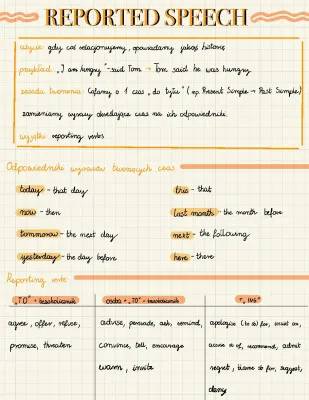 REPORTED SPEECH
użycie: gdy coś relacjonujemy, opowiadamy jakąś historię
przykład: "I am hungry"-said Tom → Tom said he was hungry.
zasada tworzenia: Cofamy o 1 czas "do tyłu" (np. Present Simple → Past Simple)
zamieniamy wyrazy określające czas na ich odpowiedniki.
wyjątki: reporting verbs
Odpowiedniki wyrazów tworzących czas
today - that day
this - that
now - then
last month - the month before
tommorow - the next day
next - the following
yesterday - the day before
here - there
Reporting verbs
"TO" + bezokolicznik
osoba + "TO" + bezokolicznik
+ "ING"
agree, offer, refuse,
promise, threaten
advise, persuade, ask, remind,
convince, tell, encourage
warn, invite
apologise (to sb) for, insist on,
accuse sb of, recommend, admit
regret, blame sb for, suggest,
deny